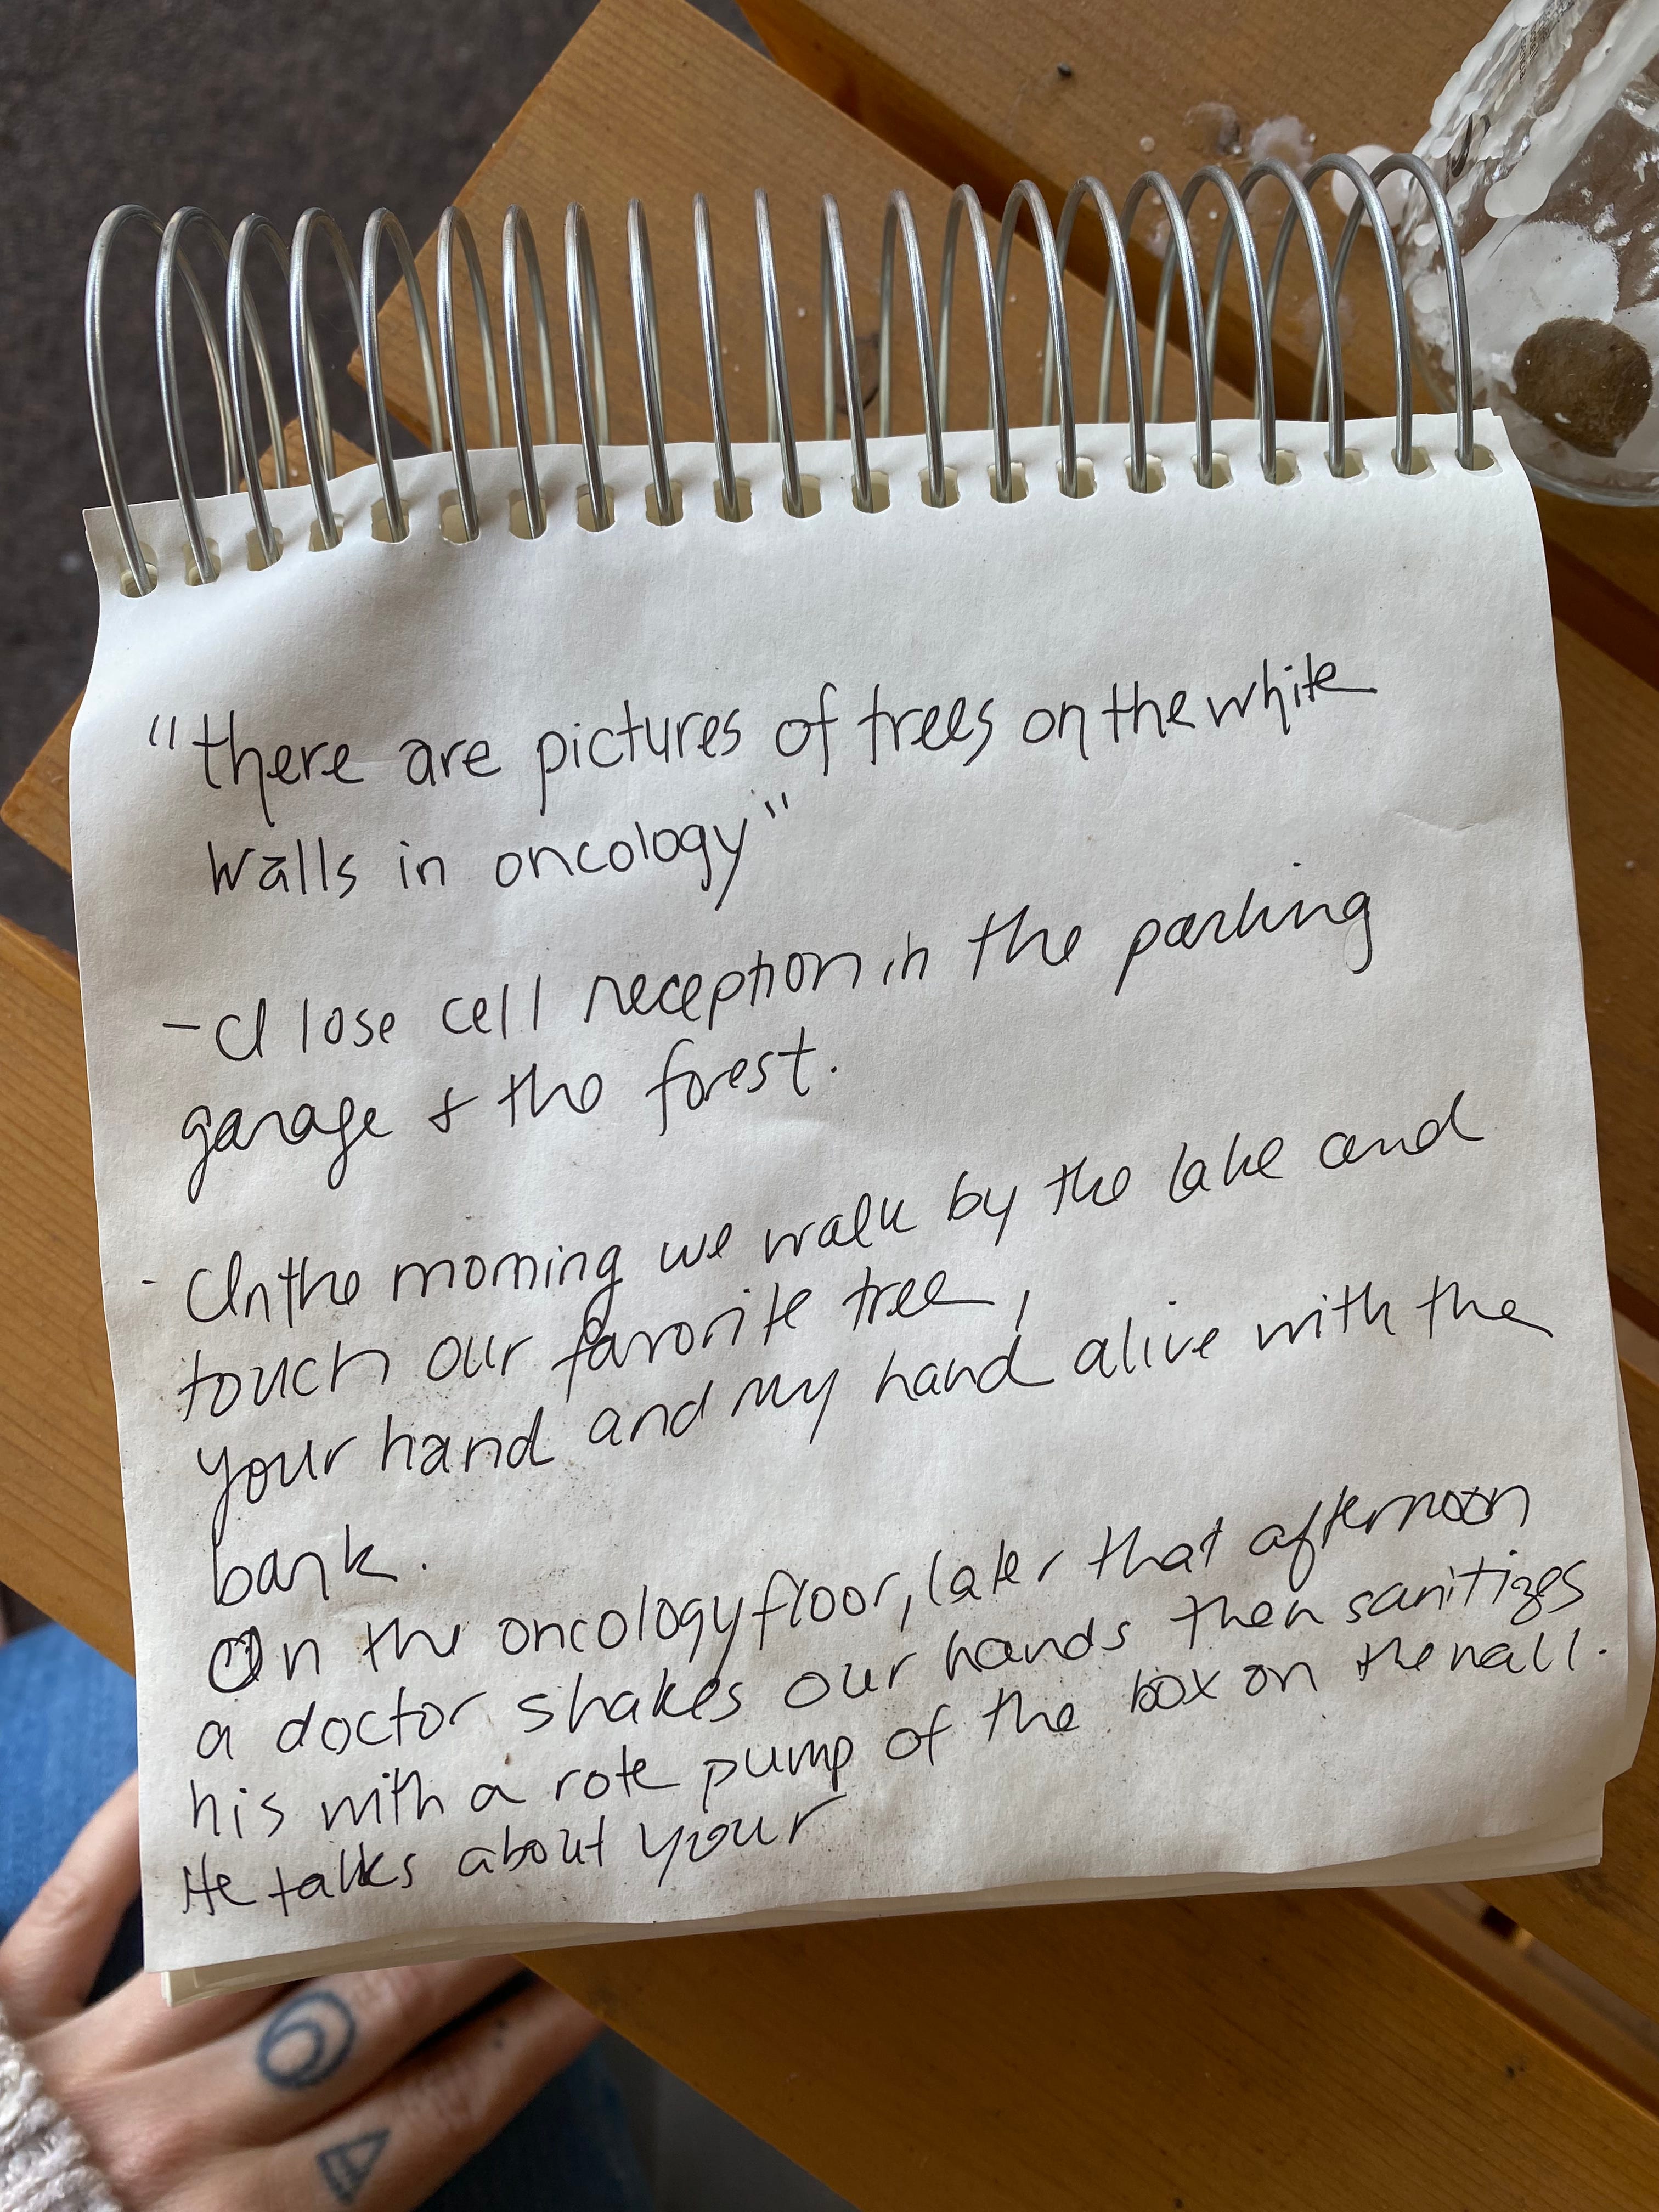 "there are pictures of trees on the white
walls in oncology"
- I lose cell reception in the parking
garage & the forest.
- In the morning we walk by the lake and
touch our favorite tree,
your hand and my hand alive with the
bank.
On the oncology floor, later that afternoon
a doctor shakes our hands then sanitizes
his with a rote pump of the box on the wall.
He talks about your